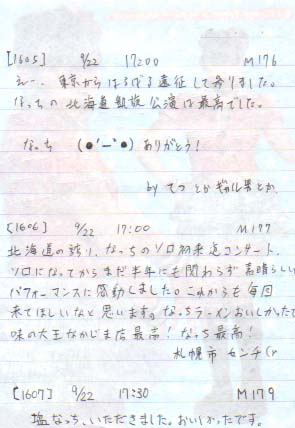 [1605] 9/22 17:00 M176
えー、東京からはるばる遠征して参りました。
なっちの北海道凱旋公演は最高でした。
なっち (●´ー`●) ありがとう!
by てつ とか ギャル男とか
[1606] 9/22 17:00 M177
北海道の誇り、なっちのソロ初来道コンサート。
ソロになってからまだ半年にも関わらず素晴らしい
パフォーマンスに感動しました。これからも毎回
来てほしいなと思います。なっちラーメンおいしかったで
味の大王なかじま店最高!なっち最高!
札幌市 センチ
[1607] 9/22 17:30 M179
塩なっち、いただきました。おいしかったです。